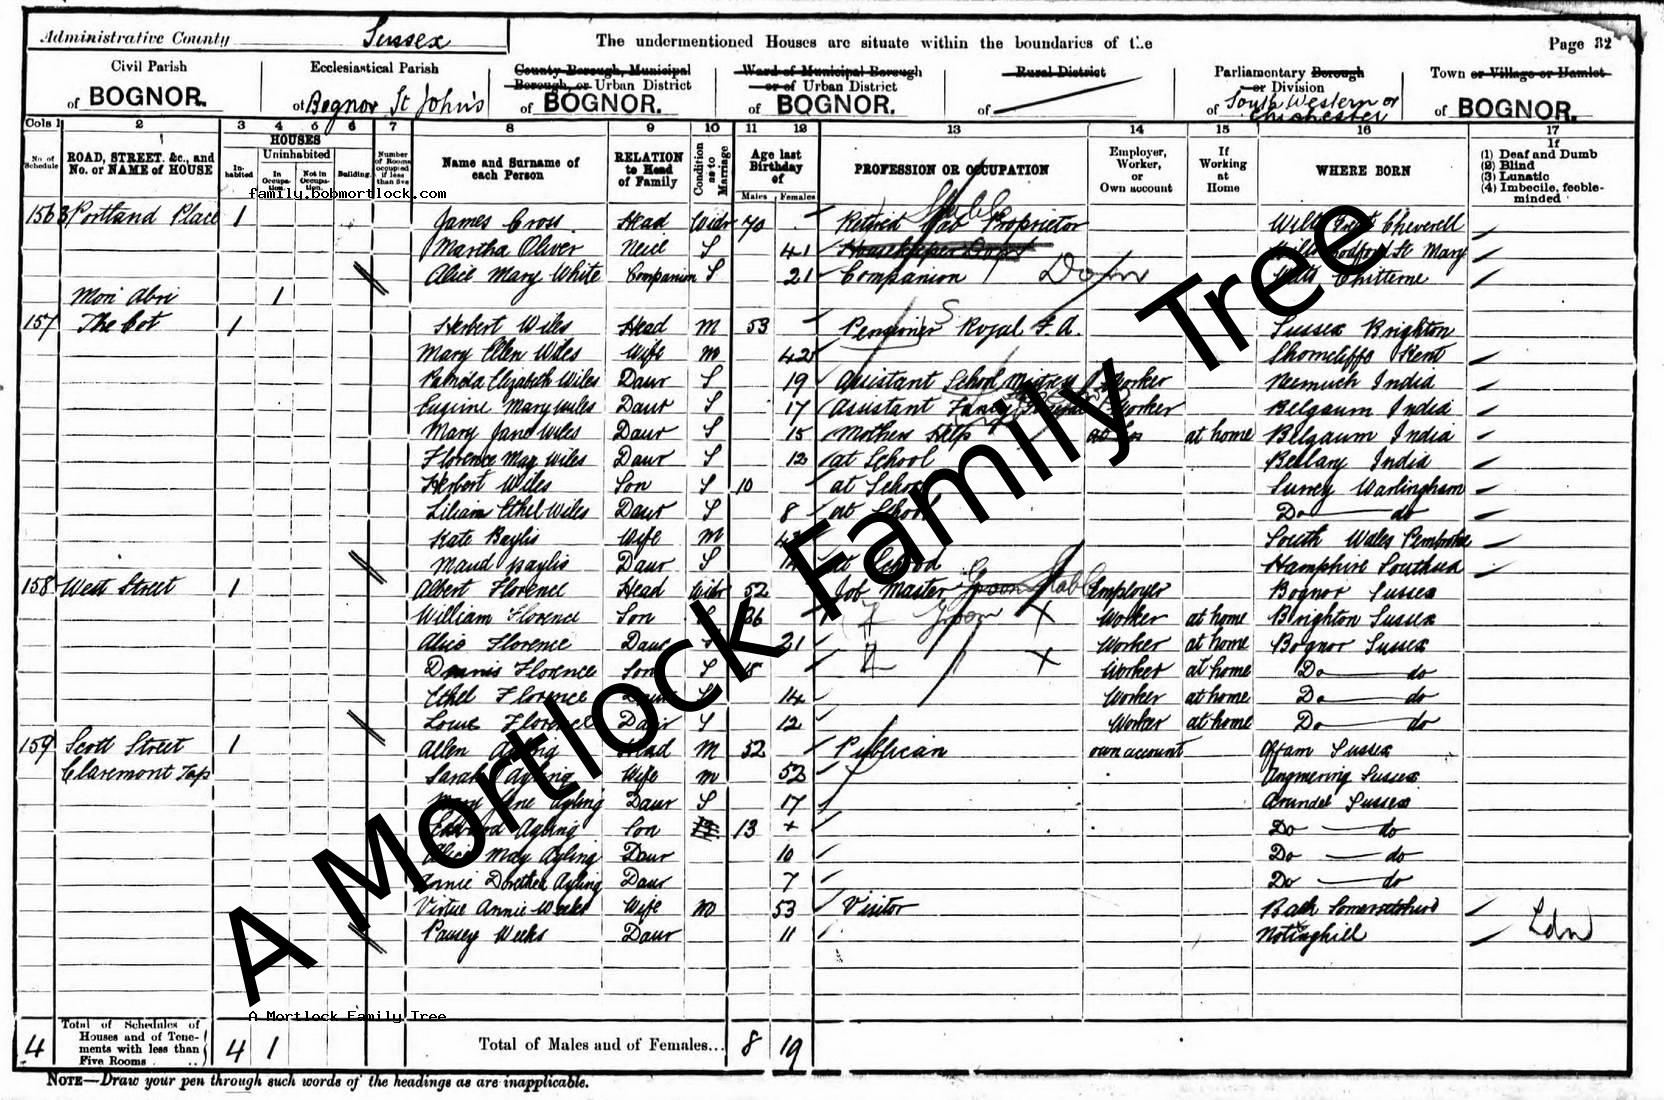 Administrative County Sussex The undermentioned Houses are situate within the boundaries of the Page 32
Civil Parish Ecclesiastical Parish County Borough, Municipal Ward of Municipal Borough Rural District Parliamentary Borough Town or Village or Hamlet
Borough, or Urban District or of Urban District or Division
of BOGNOR. of Bognor St John's of BOGNOR. of BOGNOR. of of South Western or Chichester of BOGNOR.
Cols 1 2 3 4 5 6 7 8 9 10 11 12 13 14 15 16 17
No. of Schedule ROAD, STREET, &c., and No. or NAME of HOUSE HOUSES Inhabited Uninhabited In Occupation Not in Occupation Building Number of Rooms occupied if less than five Name and Surname of each Person RELATION to Head of Family Condition as to Marriage Age last Birthday of Males Females PROFESSION OR OCCUPATION Employer, Worker, or Own account If Working at Home WHERE BORN If (1) Deaf and Dumb (2) Blind (3) Lunatic (4) Imbecile, feeble-minded
family.bobmortlock.com
156 3 Portland Place 1 James Cross Head Widr 70 Retired Cab Proprietor Wilts Great Cheverell
Martha Oliver Neice S 41 Housekeeper Wilts St Mary
Alice Mary White Companion S 21 Companion Dom Wilts Chitterne
Mon Abri 1
157 The Cot 1 Herbert Wiles Head M 53 Pensioner Royal F.A. Sussex Brighton
Mary Ellen Wiles Wife M 42 Shorncliffe Kent
Elizabeth Wiles Daur S 19 Assistant School Mistress Worker Neemuch India
Eugine Mary Wiles Daur S 17 Assistant Fancy Worker Belgaum India
Mary Jane Wiles Daur S 15 Mothers Help at home Belgaum India
Florence May Wiles Daur S 12 at School Bellary India
Herbert Wiles Son S 10 at School Surrey Warlingham
Liliam Ethel Wiles Daur S 8 at School Do do
Kate Baylis Wife M South Wales Pembroke
Maud Baylis Daur S at School Hampshire Southsea
158 West Street 1 Albert Florence Head Widr 52 Job Master Groom Stable Employer Bognor Sussex
William Florence Son S 26 Groom X Worker at home Brighton Sussex
Alice Florence Daur S 21 Worker at home Bognor Sussex
Dennis Florence Son S X Worker at home Do do
Ethel Florence Daur S 14 Worker at home Do do
Louie Florence Daur S 12 Worker at home Do do
159 Scott Street 1 Allen Ayling Head M 52 Publican own account Offam Sussex
Claremont Tap Sarah Ayling Wife M 52 Angmering Sussex
Mary Jane Ayling Daur S 17 Arundel Sussex
Edward Ayling Son 13 Do do
Alice May Ayling Daur 10 Do do
Annie Dorothea Ayling Daur 7 Do do
Virtue Annie Weeks Wife M 53 Visitor Bath Somersetshire
Pansey Weeks Daur 11 Notinghill Ldn
A Mortlock Family Tree
A Mortlock Family Tree
4 Total of Schedules of Houses and of Tenements with less than Five Rooms 4 1 Total of Males and of Females... 8 19
NOTE—Draw your pen through such words of the headings as are inapplicable.